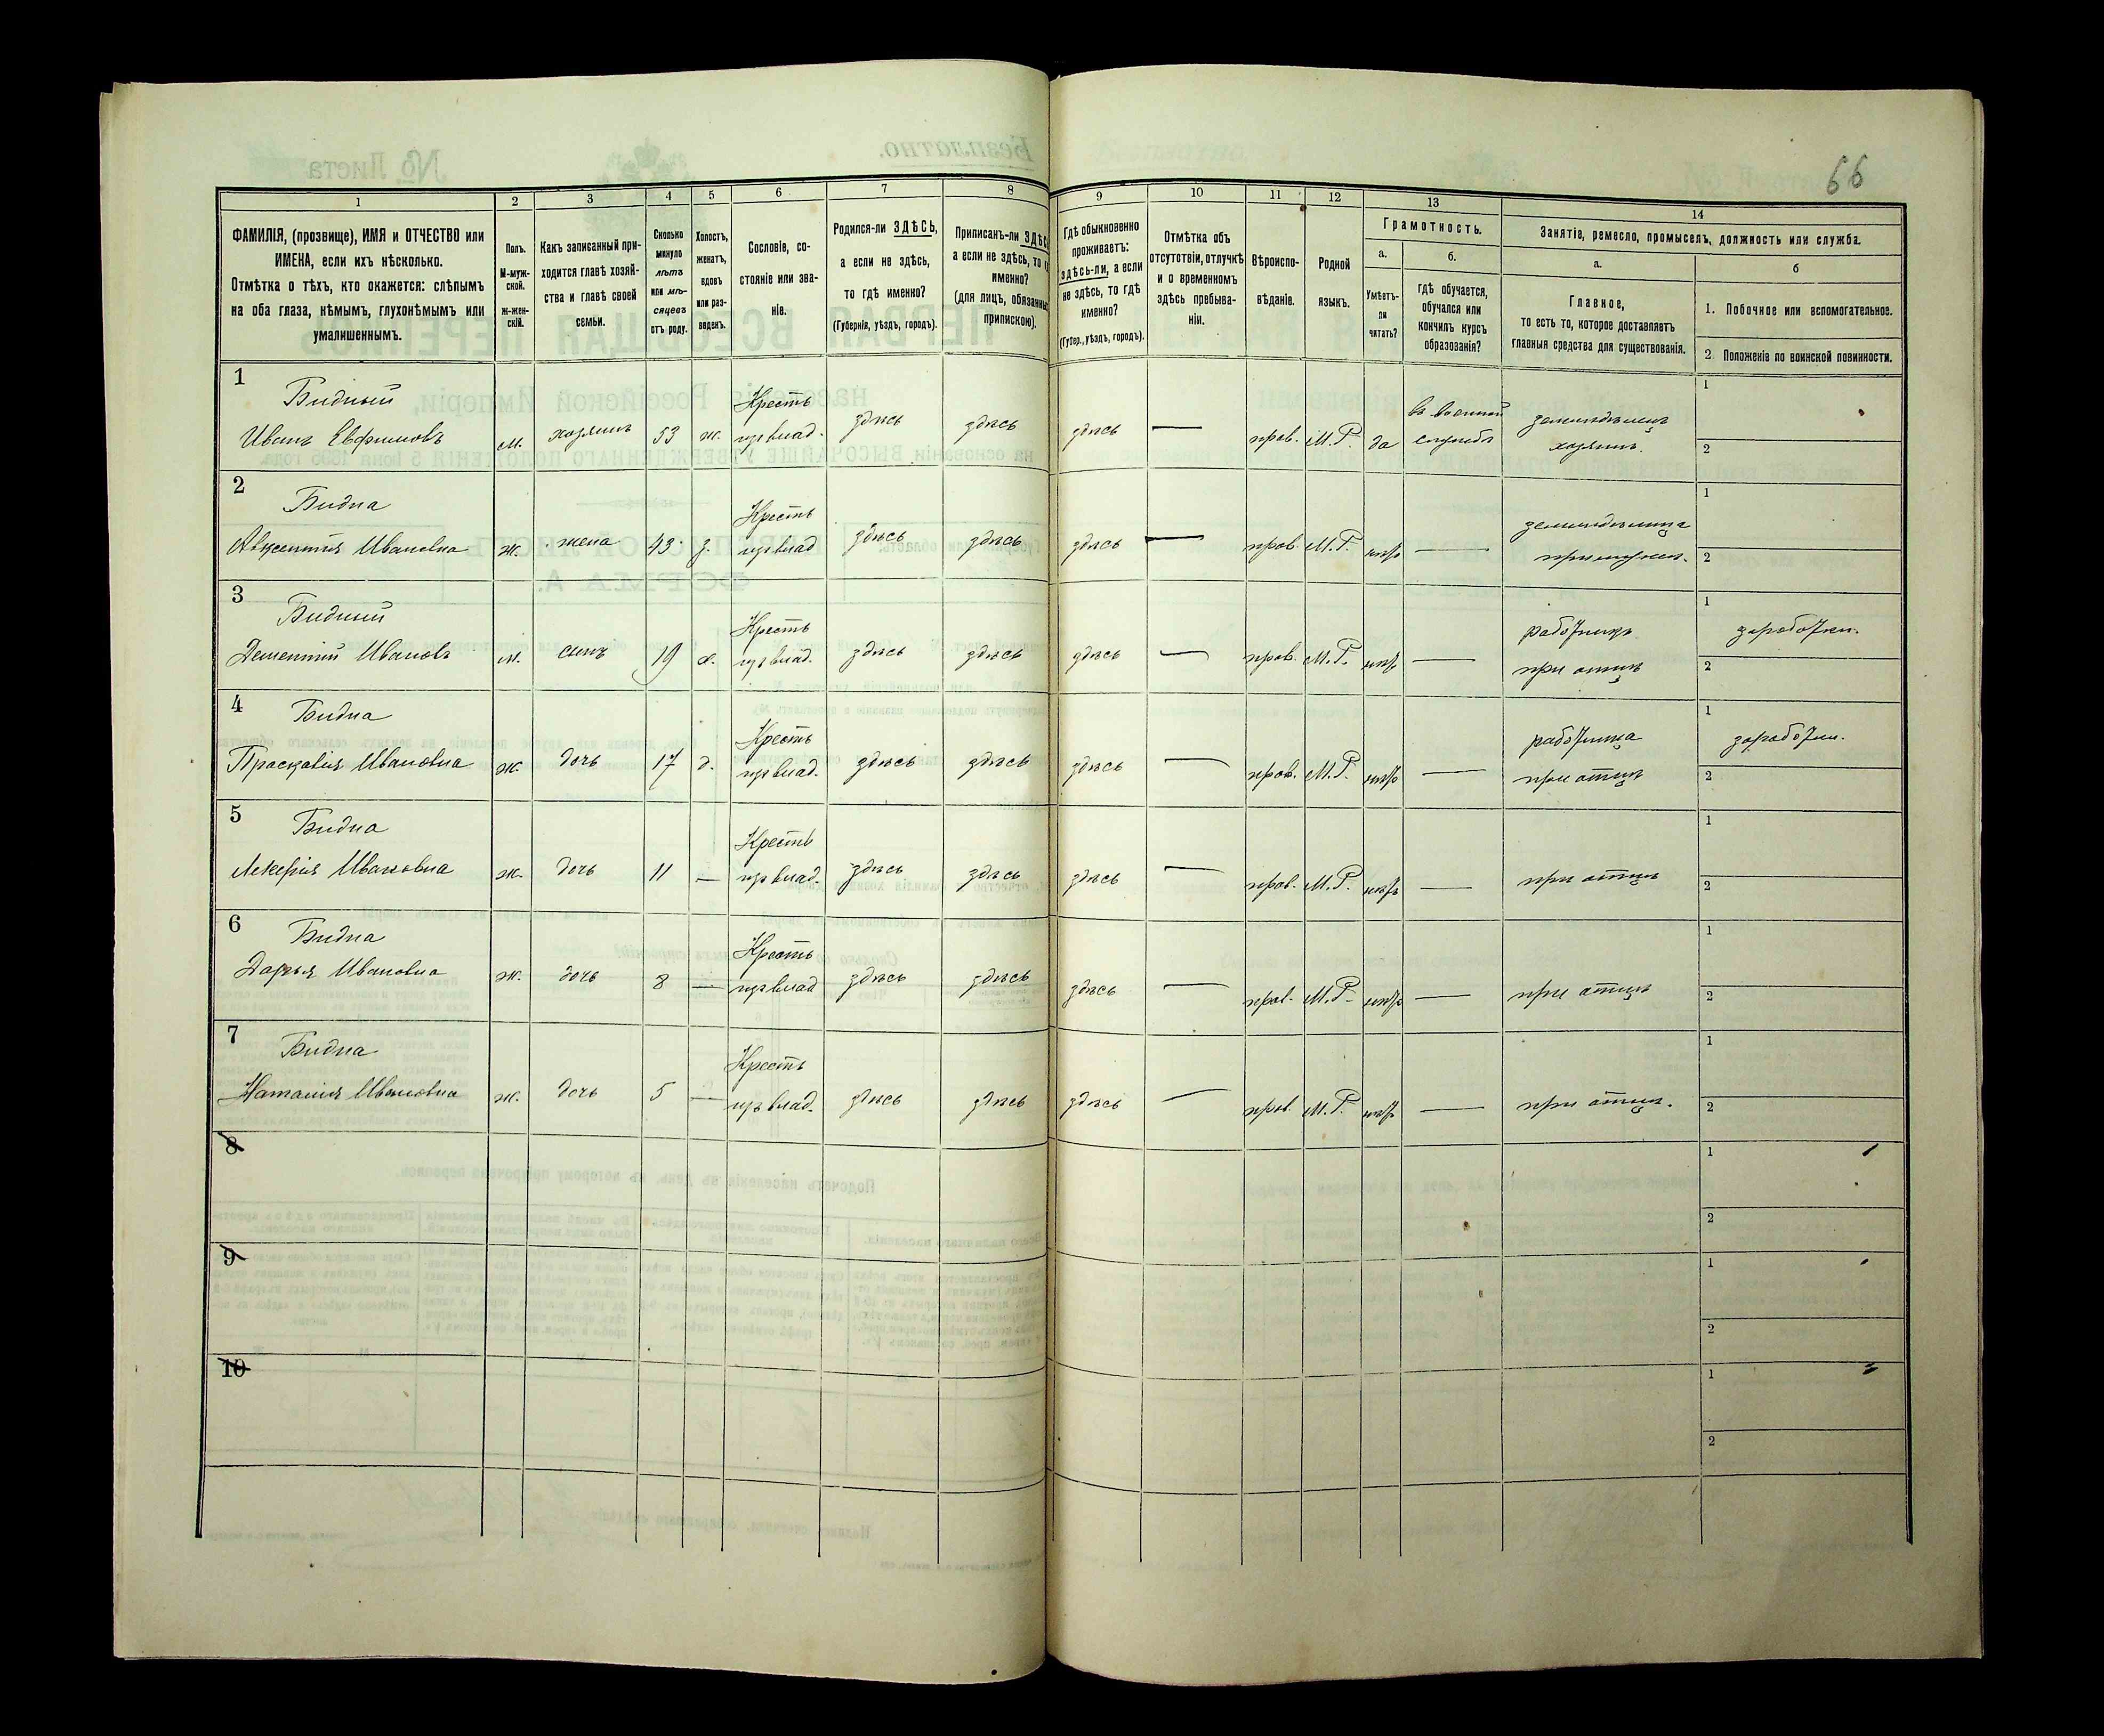 66
1
2
3
4
5
6
7
8
9
10
11
12
13
14
ФАМИЛІЯ, (прозвище), ИМЯ и ОТЧЕСТВО или
ИМЕНА, если ихъ нѣсколько.
Отмѣтка о тѣхъ, кто окажется: слѣпымъ
на оба глаза, нѣмымъ, глухонѣмымъ или
умалишеннымъ.
Полъ.
М-муж-
ской.
ж-жен-
скій.
Какъ записанный при-
ходится главѣ хозяй-
ства и главѣ своей
семьи.
Сколько
минуло
лѣтъ
или мѣ-
сяцевъ
отъ роду.
Холостъ,
женатъ,
вдовъ
или раз-
веденъ.
Сословіе, со-
стояніе или зва-
ніе.
Родился-ли ЗДѢСЬ,
а если не здѣсь,
то гдѣ именно?
(Губернія, уѣздъ, городъ).
Приписанъ-ли ЗДѢСЬ
а если не здѣсь, то гдѣ
именно?
(для лицъ, обязанныхъ
припискою).
Гдѣ обыкновенно
проживаетъ:
здѣсь-ли, а если
не здѣсь, то гдѣ
именно?
(Губер., уѣздъ, городъ).
Отмѣтка объ
отсутствіи, отлучкѣ
и о временномъ
здѣсь пребыва-
ніи.
Вѣроиспо-
вѣданіе.
Родной
языкъ.
Грамотность.
а.
Умѣетъ-
ли
читать?
б.
гдѣ обучается,
обучался или
кончилъ курсъ
образованія?
Занятіе, ремесло, промыселъ, должность или служба.
а.
Главное,
то есть то, которое доставляетъ
главныя средства для существованія.
б
1. Побочное или вспомогательное.
2 Положеніе по воинской повинности.
1
Бидный
Иванъ Евфимовъ
м.
хозяинъ
53
ж.
Кресть
изъ влад.
здѣсь
здѣсь
здѣсь
—
прав.
М.Р.
да
въ военной
службѣ
земледѣлецъ
хозяинъ.
1
2
2
Бидна
Авксентія Ивановна
ж.
жена
43
з.
Кресть
изъ влад
здѣсь
здѣсь
здѣсь
—
прав.
М.Р.
нѣтъ
—
земледѣлица
при мужѣ.
1
2
3
Бидный
Дементій Ивановъ
м.
сынъ
19
х.
Кресть
изъ влад.
здѣсь
здѣсь
здѣсь
—
прав.
М.Р.
нѣтъ
—
работникъ
при отцѣ
1
заработки.
2
4
Бидна
Прасковія Ивановна
ж.
дочь
17
д.
Кресть
изъ влад.
здѣсь
здѣсь
здѣсь
—
прав.
М.Р.
нѣтъ
—
работница
при отцѣ
1
заработки.
2
5
Бидна
Лукерія Ивановна
ж.
дочь
11
—
Кресть
изъ влад.
здѣсь
здѣсь
здѣсь
—
прав.
М.Р.
нѣтъ
—
при отцѣ
1
2
6
Бидна
Дарья Ивановна
ж.
дочь
8
—
Кресть
изъ влад
здѣсь
здѣсь
здѣсь
—
прав.
М.Р.
нѣтъ
—
при отцѣ
1
2
7
Бидна
Наталія Ивановна
ж.
дочь
5
—
Кресть
изъ влад.
здѣсь
здѣсь
здѣсь
—
прав.
М.Р.
нѣтъ
—
при отцѣ.
1
2
8
1
2
9
1
2
10
1
2